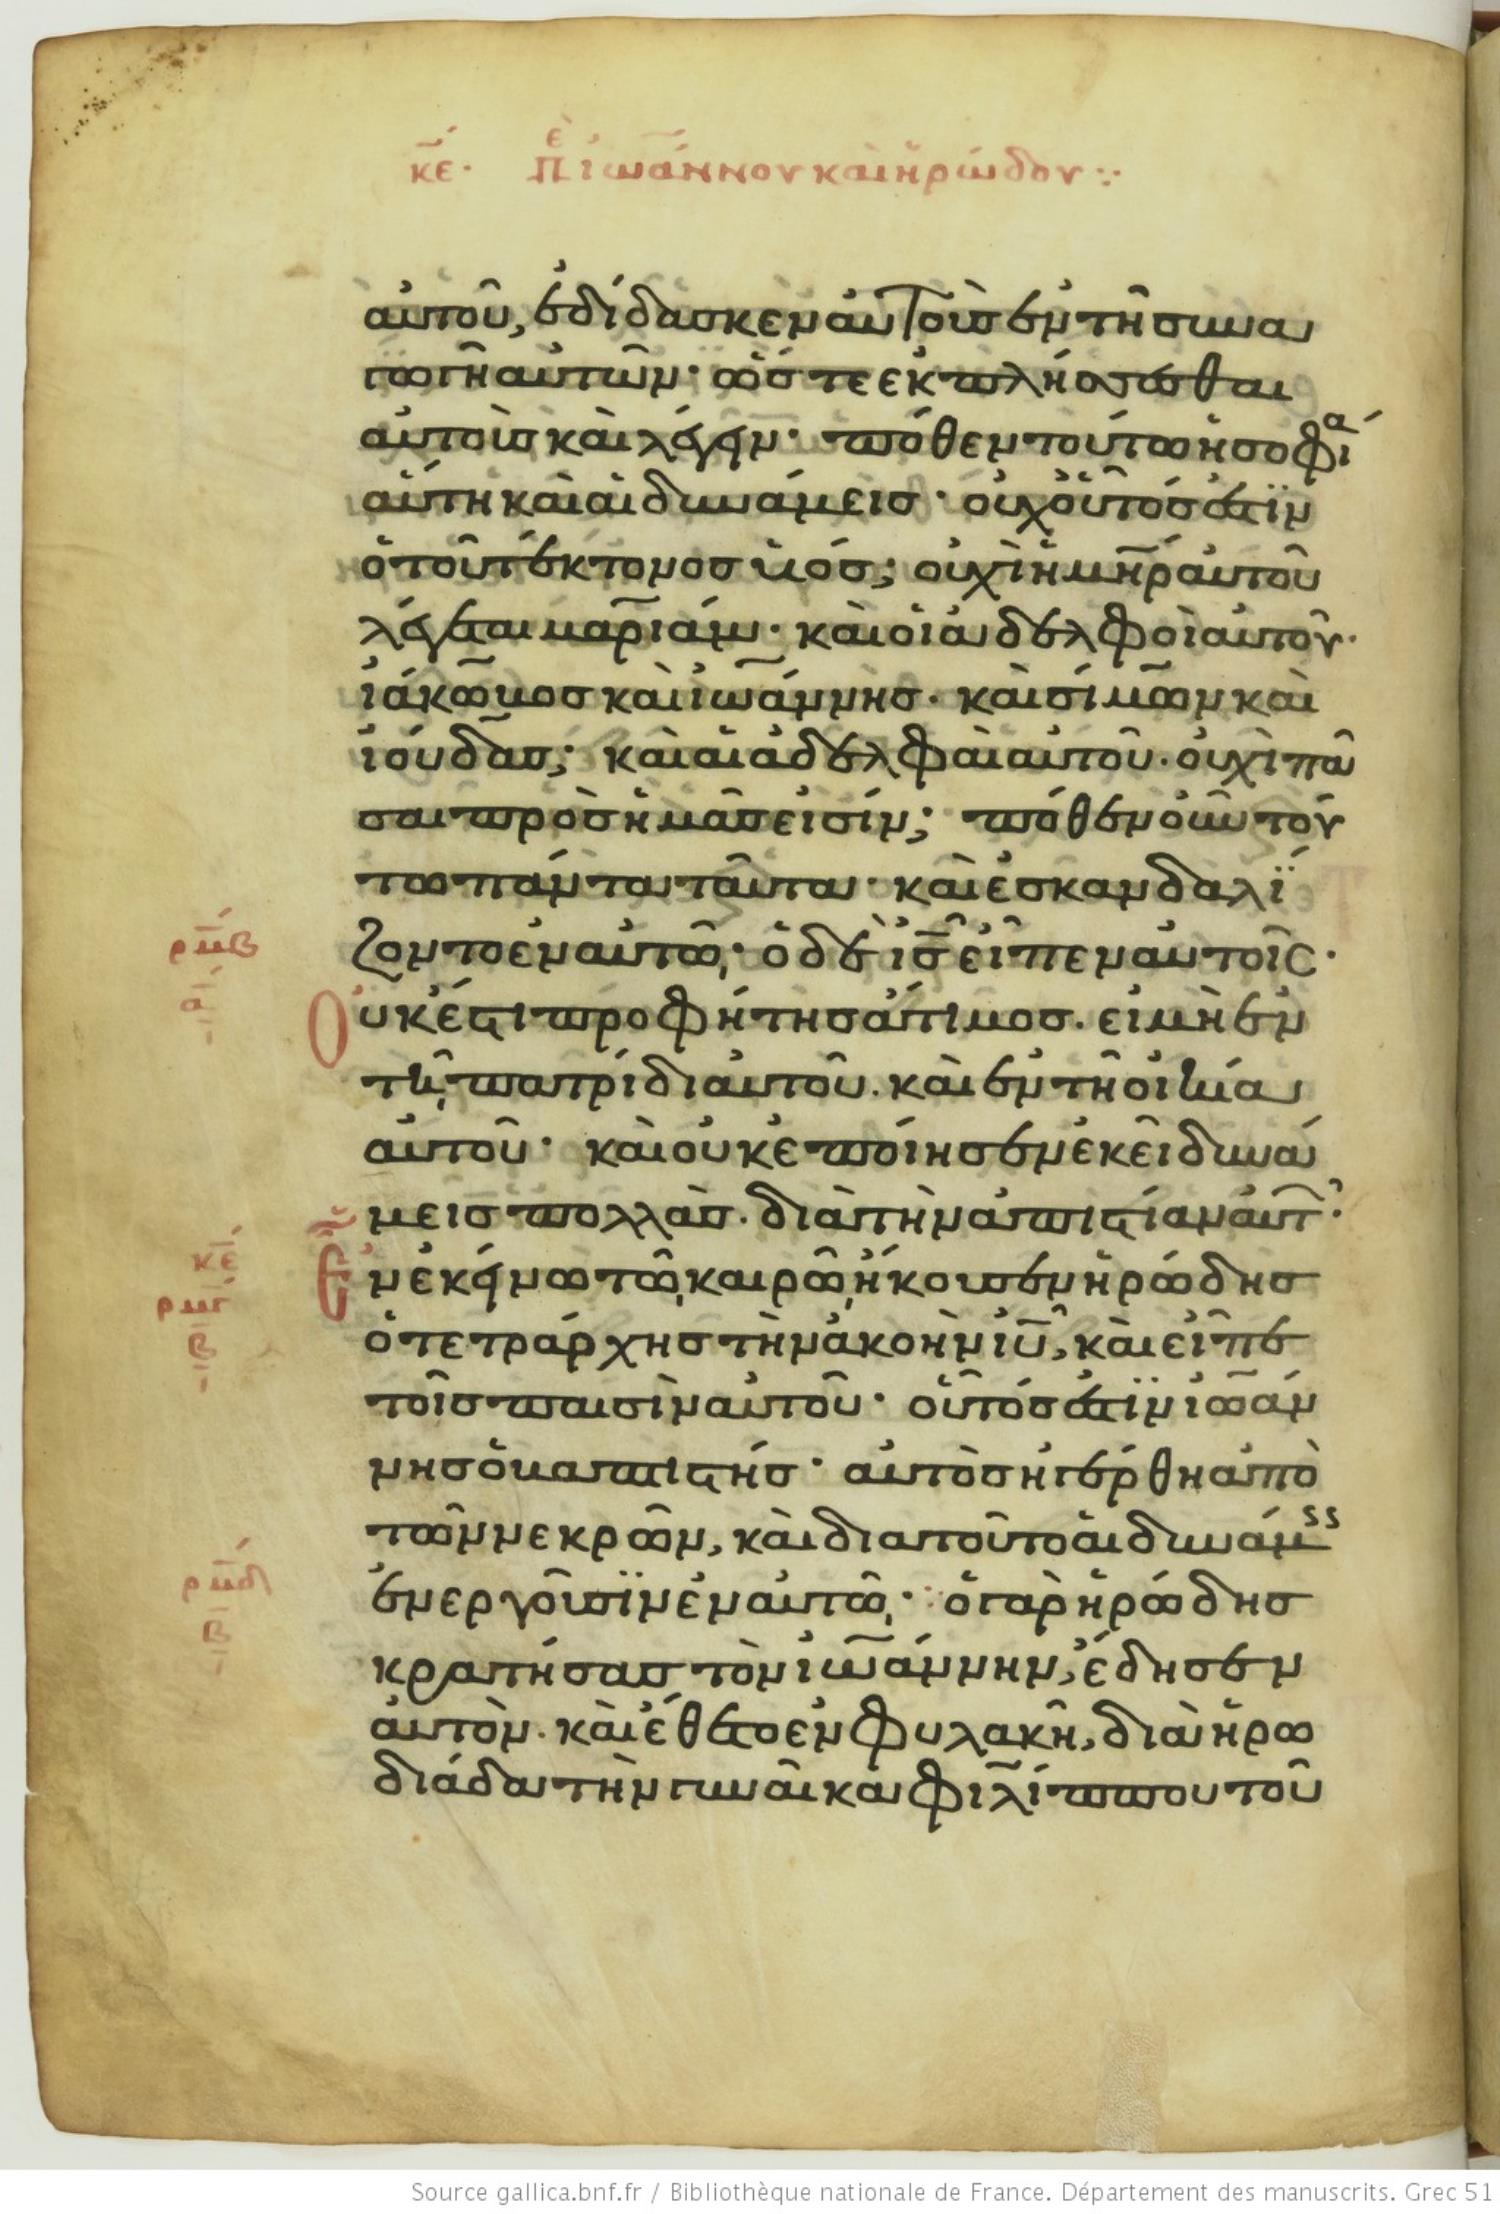 κε· Περὶ ἰωάννου καὶ ἡρώδου:·
αὐτοῦ, ἐδίδασκεν αὐτοὺς ἐν τῆ συνα
γωγῆ αὐτῶν· ὥστε ἐκπλήσσεσθαι
αὐτοὺς καὶ λέγειν· πόθεν τούτω ἡ σοφία
αὕτη καὶ αἱ δυνάμεις· οὐχ οὗτός ἐστϊν
ὁ τοῦ τέκτονος υἱός; οὐχὶ ἡ μηρ αὐτοῦ
λέγεται μαριάμ· καὶ οἱ ἀδελφοὶ αὐτοῦ·
ἰάκωβος καὶ ἰωάννης· καὶ σίμων καὶ
ἰούδας; καὶ αἱ ἀδελφαὶ αὐτοῦ· οὐχὶ πᾶ
σαι πρὸς ἡμᾶς εἰσίν; πόθεν οὖν τού
τω πάντα ταῦτα· καὶ ἐσκανδαλΐ
ζοντο ἐν αὐτῶ· ὁ δὲ ις εἶπεν αὐτοῖς·
ρμβ
Οὐκ ἔστι προφήτης ἄτιμος· εἰ μὴ ἐν
α
τῆ πατρίδι αὐτοῦ· καὶ ἐν τῆ οἰκία
αὐτοῦ· καὶ οὐκ ἐποίησεν ἐκεῖ δυνά
μεις πολλὰς· διὰ τὴν ἀπιστίαν αὐτ·
κε
Ἐν ἐκείνω τῶ καιρῶ ἤκουσεν ἡρώδης
ρμγ
ὁ τετράρχης τὴν ἀκοὴν ιυ, καὶ εἶπε
β
τοῖς παισὶν αὐτοῦ· οὗτός ἐστϊν ἰωάν
νης ὁ βαπτιστής· αὐτὸς ἠγέρθη ἀπὸ
τῶν νεκρῶν, καὶ δια τοῦτο αἱ δυνάμεις
ρμδ
ἐνεργοῦσϊν ἐν αὐτῶ· ὁ γὰρ ἡρώδης
β
κρατήσας τὸν ἰωάννην, ἔδησεν
αὐτὸν· καὶ ἔθετο ἐν φυλακῆ, διὰ ἡρω
διάδα τὴν γυναῖκα φιλίππου τοῦ
Source gallica.bnf.fr / Bibliothèque nationale de France. Département des manuscrits. Grec 51